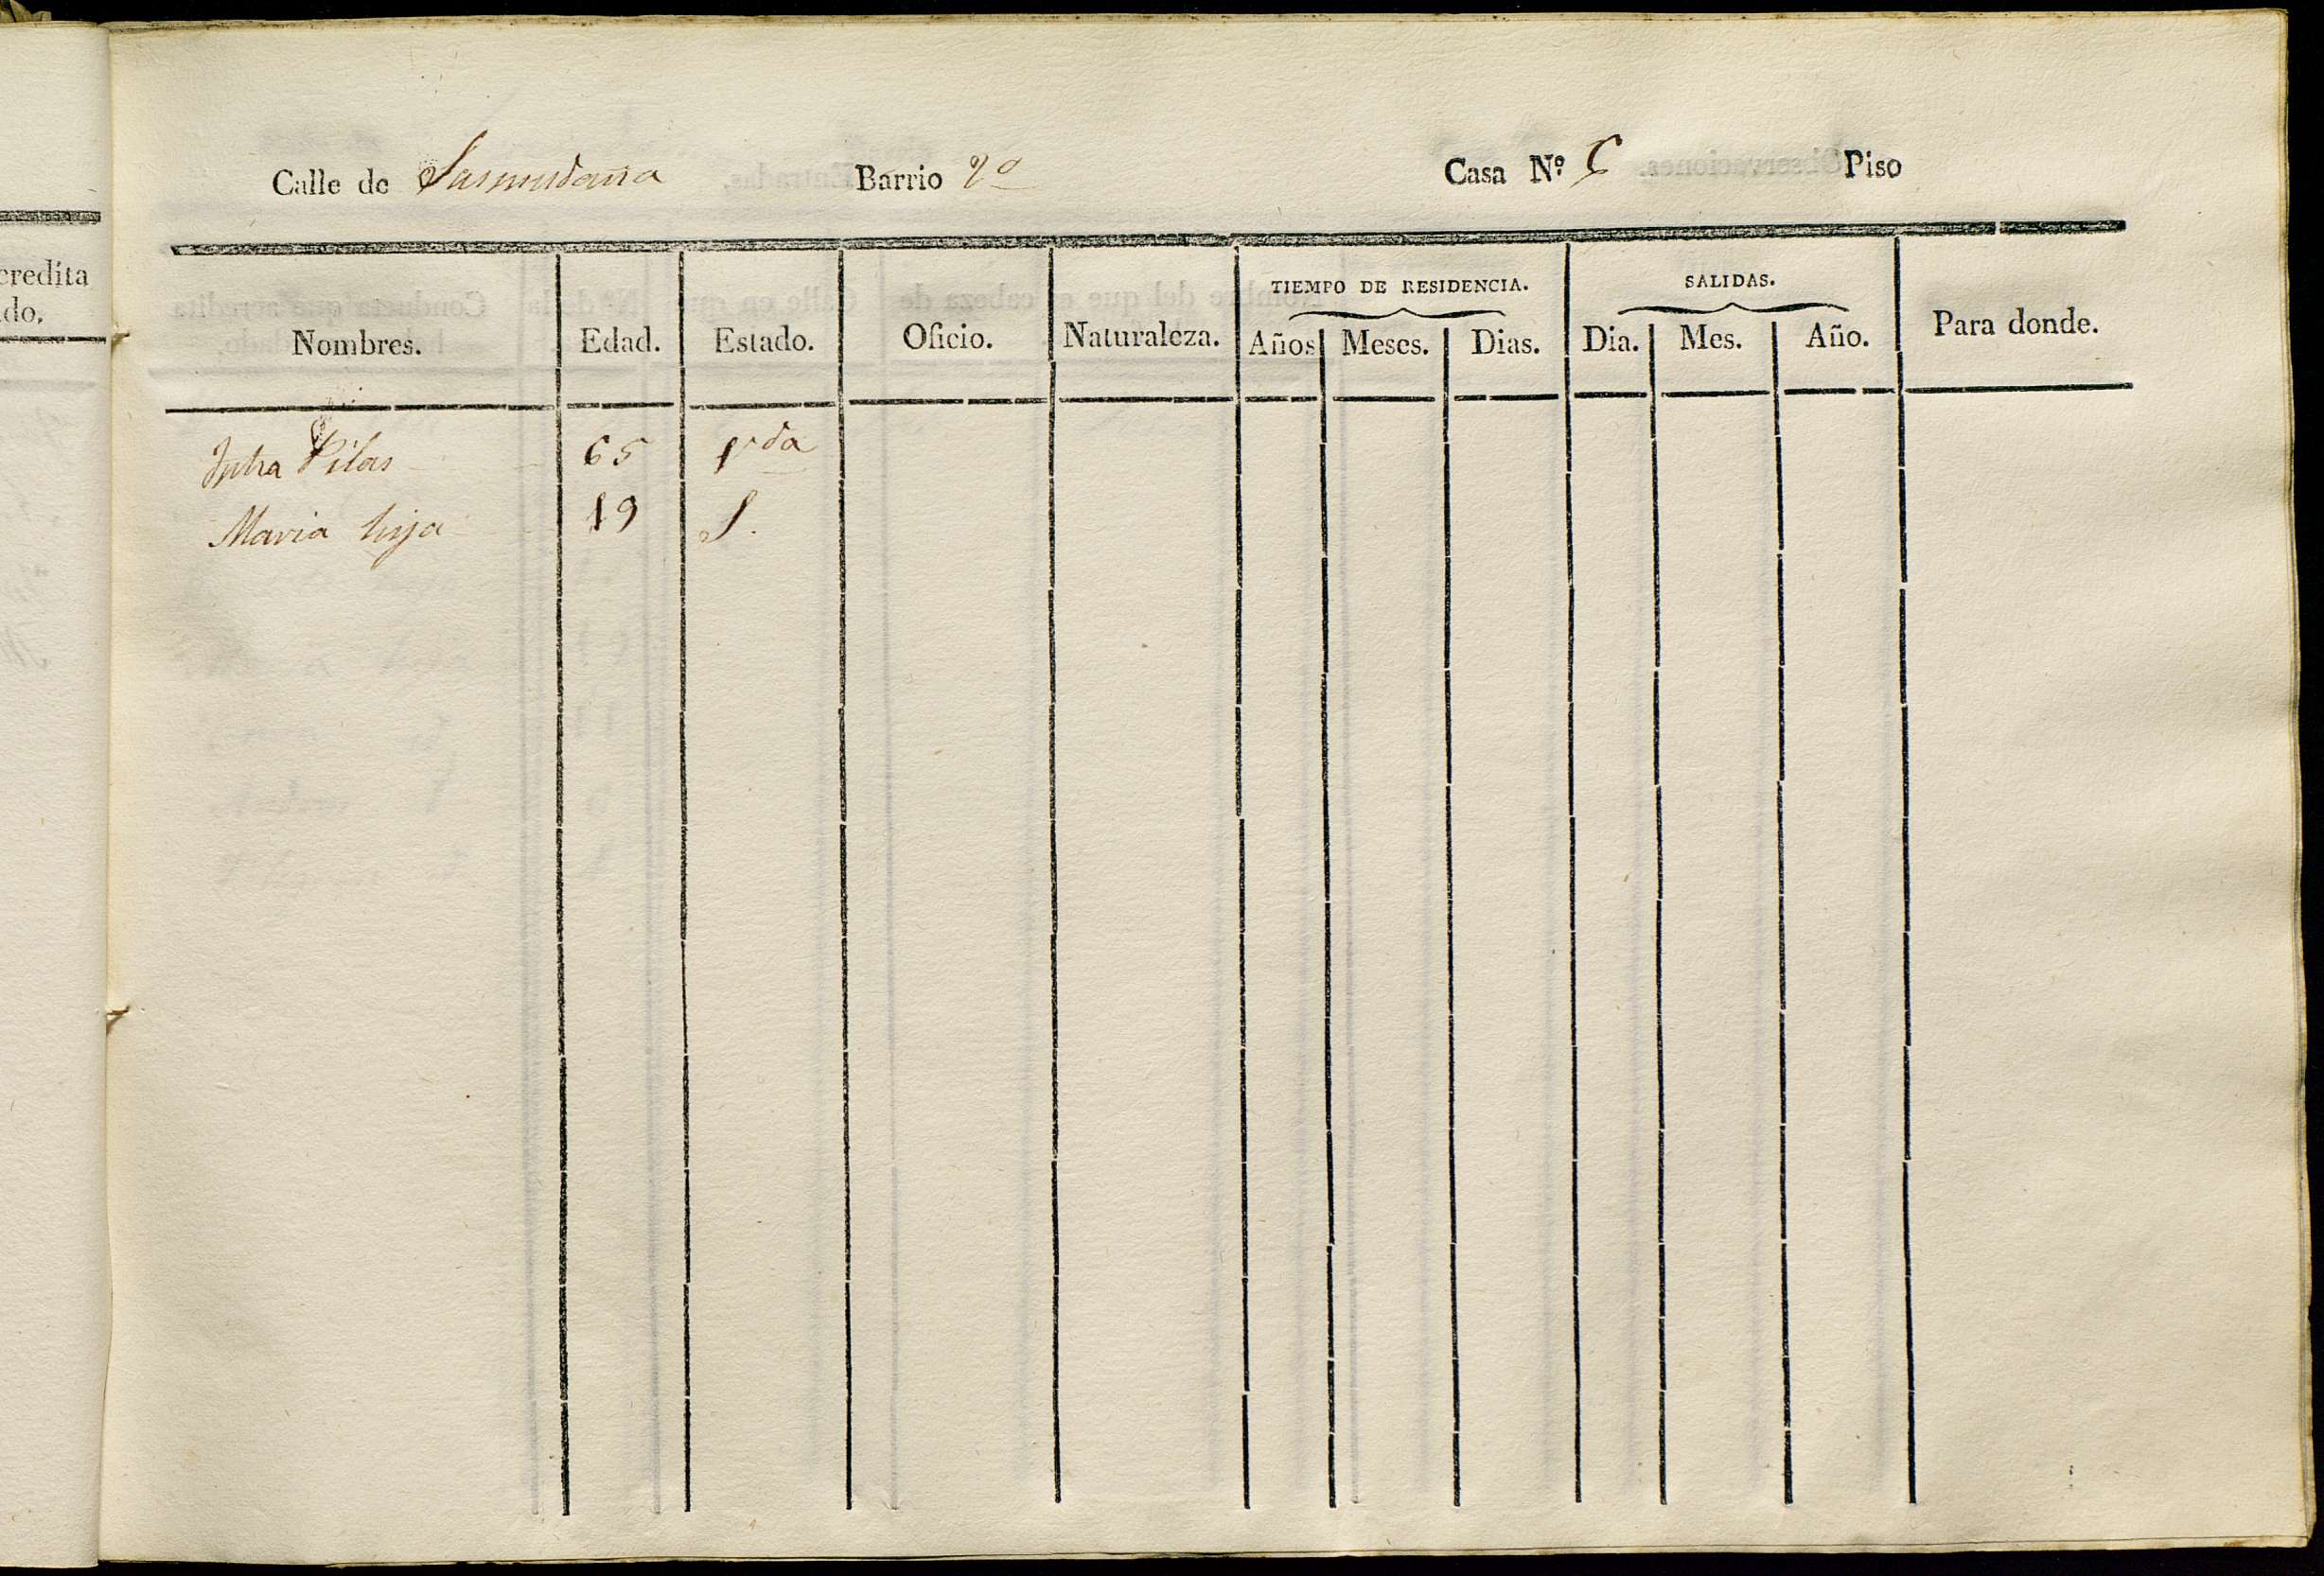 credita
do.
Calle de Barrio 2º Casa Nº Piso
Nombres. Edad. Estado. Oficio. Naturaleza. TIEMPO DE RESIDENCIA. Años Meses. Dias. SALIDAS. Dia. Mes. Año. Para donde.
Pilas 65 Vda
Maria hija 19 S.